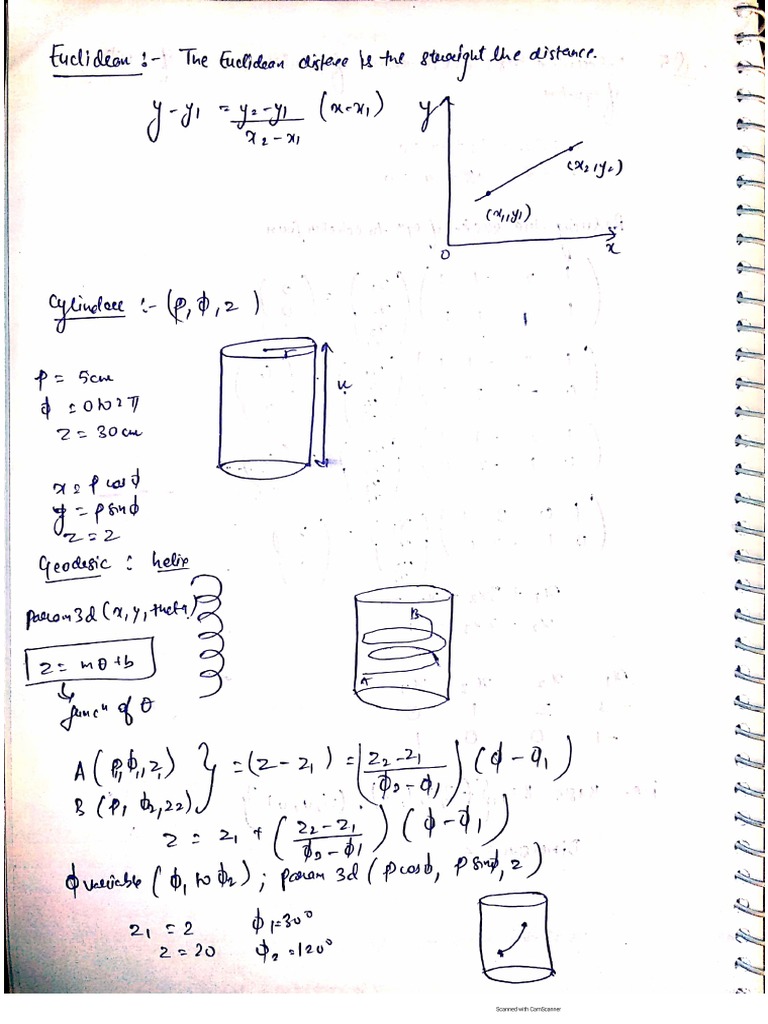 Euclidean :- The Euclidean distance is the straight line distance.
y - y1 = y2 - y1 / x2 - x1 (x - x1)
y
(x2, y2)
(x1, y1)
0
x
Cylinder :- (ρ, ϕ, z)
r
ρ = 5cm
ϕ = 0 to 2π
z = 30 cm
x = ρ cosϕ
y = ρ sinϕ
z = z
Geodesic : helix
param3d (x, y, theta)
z = mθ + b
func^n of θ
B
A
A (ρ, ϕ1, z1) } = (z - z1) = (z2 - z1 / ϕ2 - ϕ1) (ϕ - ϕ1)
B (ρ, ϕ2, z2)
z = z1 + (z2 - z1 / ϕ2 - ϕ1) (ϕ - ϕ1)
ϕ variable (ϕ1 to ϕ2) ; param 3d (ρ cosϕ, ρ sinϕ, z)
z1 = 2 ϕ1 = 30°
z = 20 ϕ2 = 120°
Scanned with CamScanner